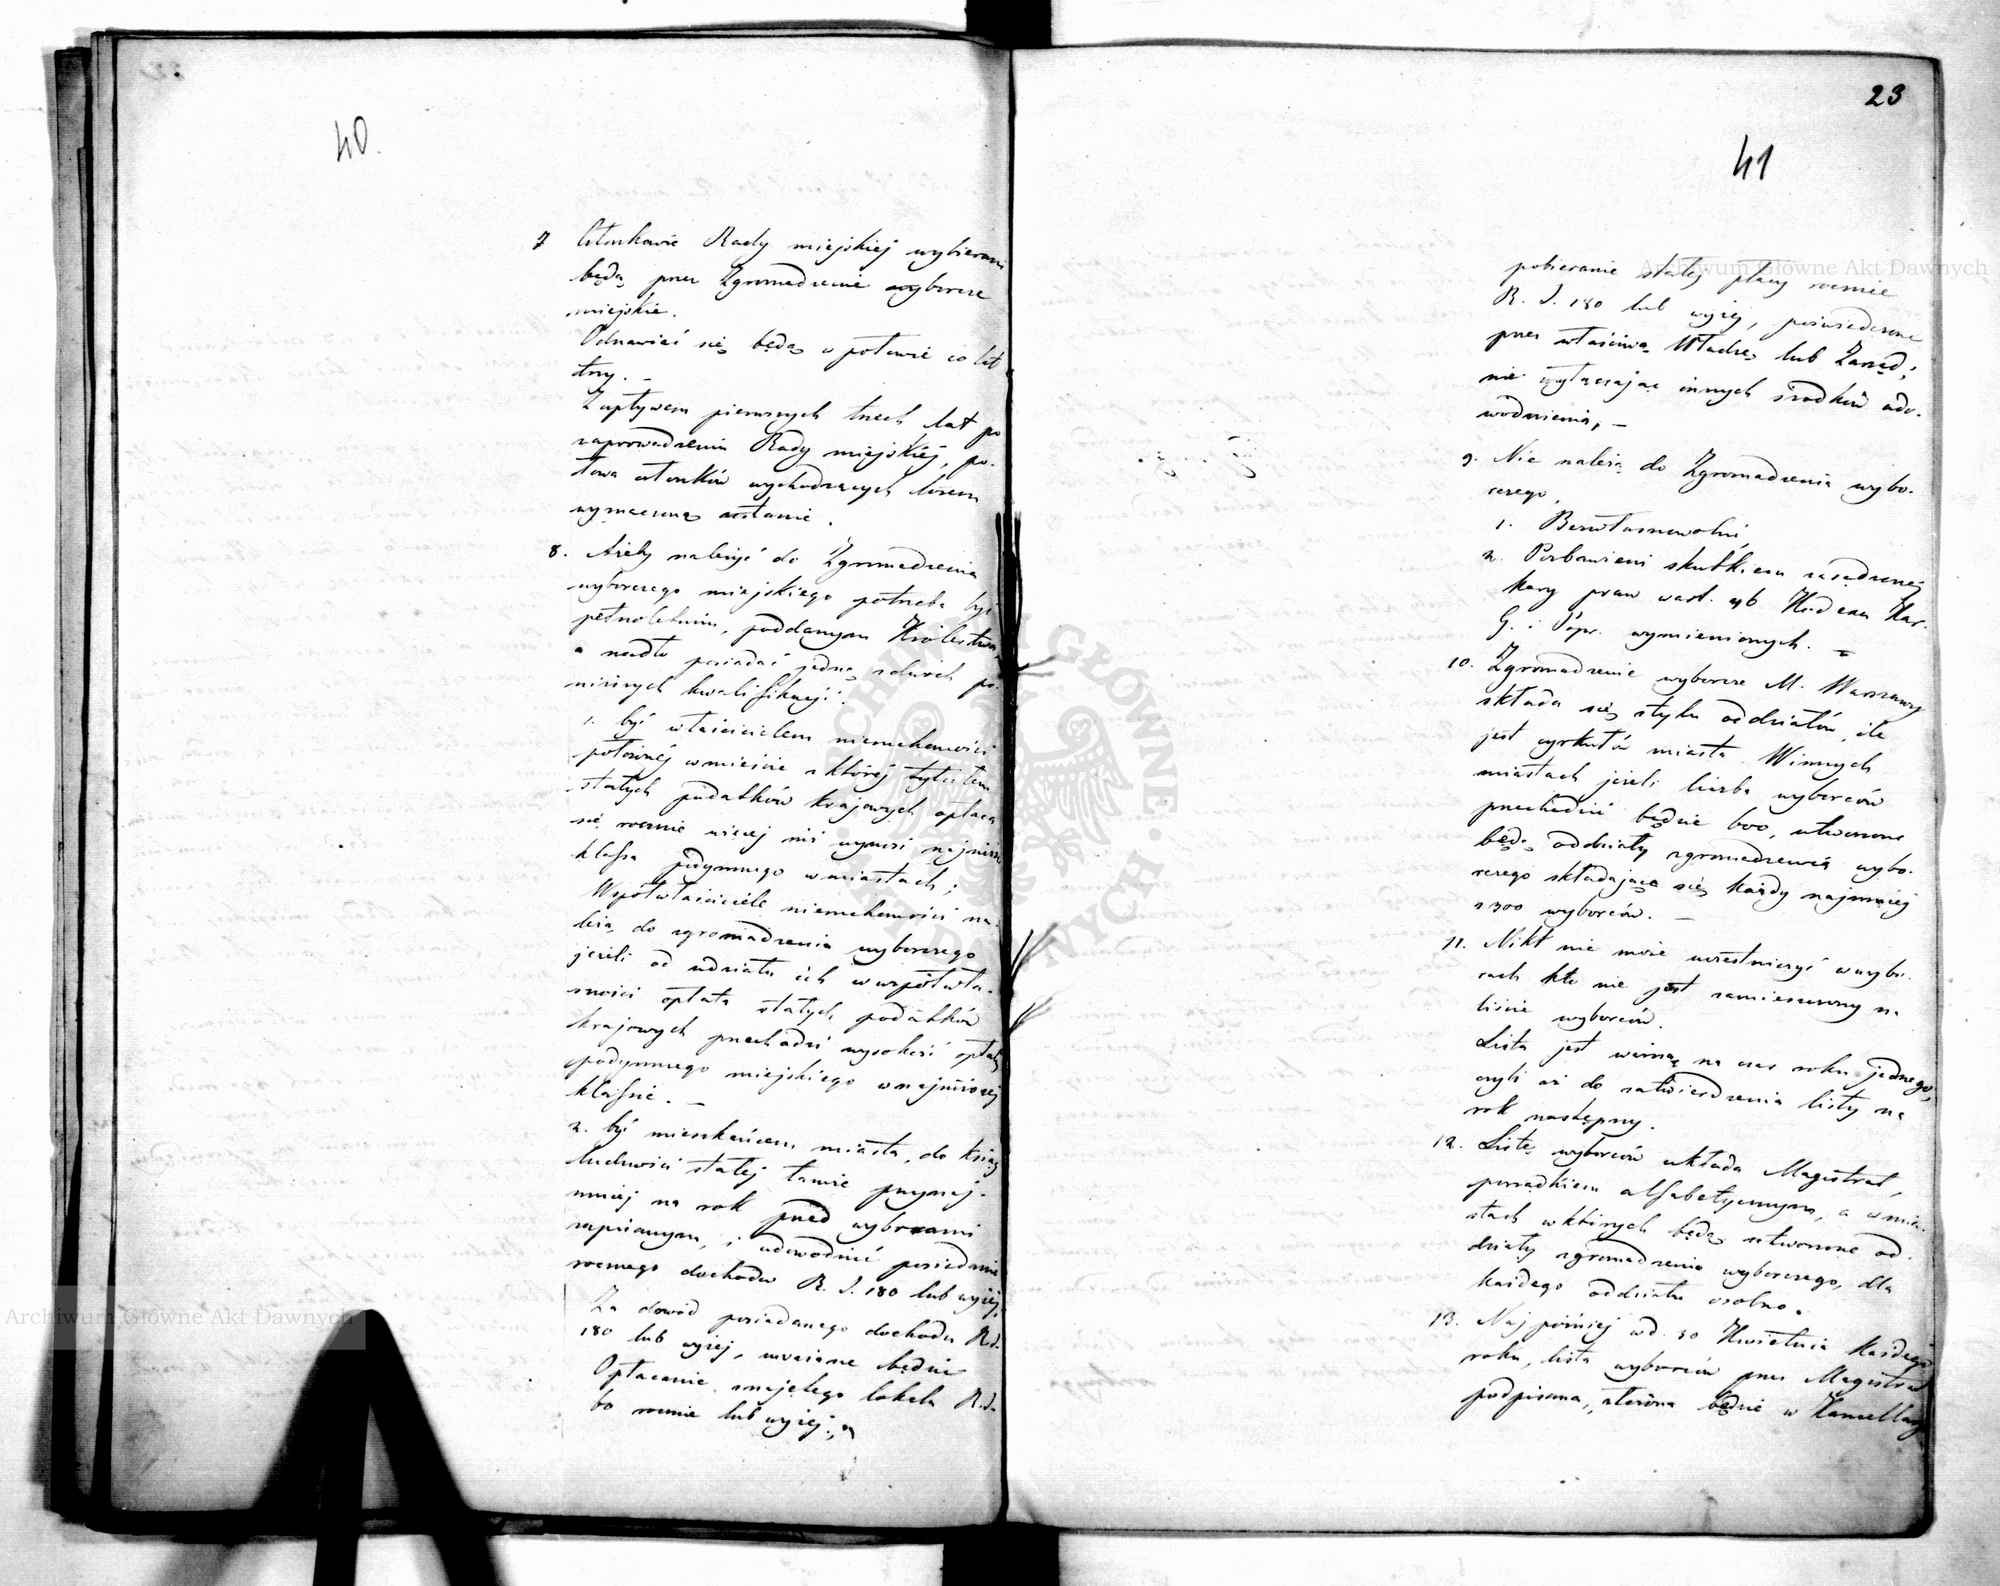 40.
7 Członkowie Rady miejskiej wybierani
będą przez Zgromadzenie wyborcze
miejskie.
Odnawiać się będą w połowie co lat
trzy. _
Z upływem pierwszych trzech lat po
zaprowadzeniu Rady miejskiej, po-
łowa członków wychodzących losem
wyznaczoną zostanie.
8. Ażeby należyć do Zgromadzenia
wyborczego miejskiego potrzeba być
pełnoletnim, poddanym Królestwa,
a nadto posiadać jedną z dwóch po-
niższych kwalifikacji:
1. być właścicielem nieruchomości
położonéj w mieście z któréj tytułem
stałych podatków krajowych opłaca
się rocznie więcej niż wynosi najniższa
klassa podymnego w miastach;
Współwłaściciele nieruchomości na-
leżą do zgromadzenia wyborczego
jeżeli od udziału ich w współwła-
sności opłata stałych podatków
krajowych przechodzi wysokość opłaty
podymnego miejskiego w najniższej
klassie. _
2. być mieszkańcem miasta, do ksiąg
ludności stałej tamże przynaj-
mniej na rok przed wyborami
zapisanym, i udowodnić posiadanie
rocznego dochodu R. S. 180 lub wyżej,
Za dowód posiadanego dochodu R.S.
180 lub wyżej, uważane będzie
Opłacanie najętego lokalu R.S.
60 rocznie lub wyżej;
23
41
pobieranie stałej płacy rocznie
R. S. 180 lub wyżej, poświadczone
przez właściwą Władzę lub Zarząd;
nie wyłączając innych środków udo-
wodnienia, _
9. Nie należą do Zgromadzenia wybo-
rczego,
1. Bezwłasnowolni,
2. Pozbawieni skutkiem zasądzonej
kary praw w art. 26 Kodexu Kar.
G. i Popr. wymienionych. _
10. Zgromadzenie wyborcze M. Warszawy
składa się z tylu oddziałów, ile
jest cyrkułów miasta. W innych
miastach jeżeli liczba wyborców
przechodzić będzie 600, utworzone
będą oddziały zgromadzenia wybo-
rczego składające się każdy najmniej
z 300 wyborców. _
11. Nikt nie może uczestniczyć w wybo-
rach kto nie jest zamieszczony na
liście wyborców.
Lista jest ważną na czas roku jednego,
czyli aż do zatwierdzenia listy na
rok następny.
12. Listę wyborców układa Magistrat,
porządkiem alfabetycznym, a w mia-
stach w których będą utworzone od-
działy zgromadzenia wyborczego, dla
każdego oddziału osobno.
13. Najpóźniej w d. 30 Kwietnia każdego
roku, lista wyborców przez Magistrat
podpisana, złożona będzie w Kancellaryi
Archiwum Główne Akt Dawnych
Archiwum Główne Akt Dawnych